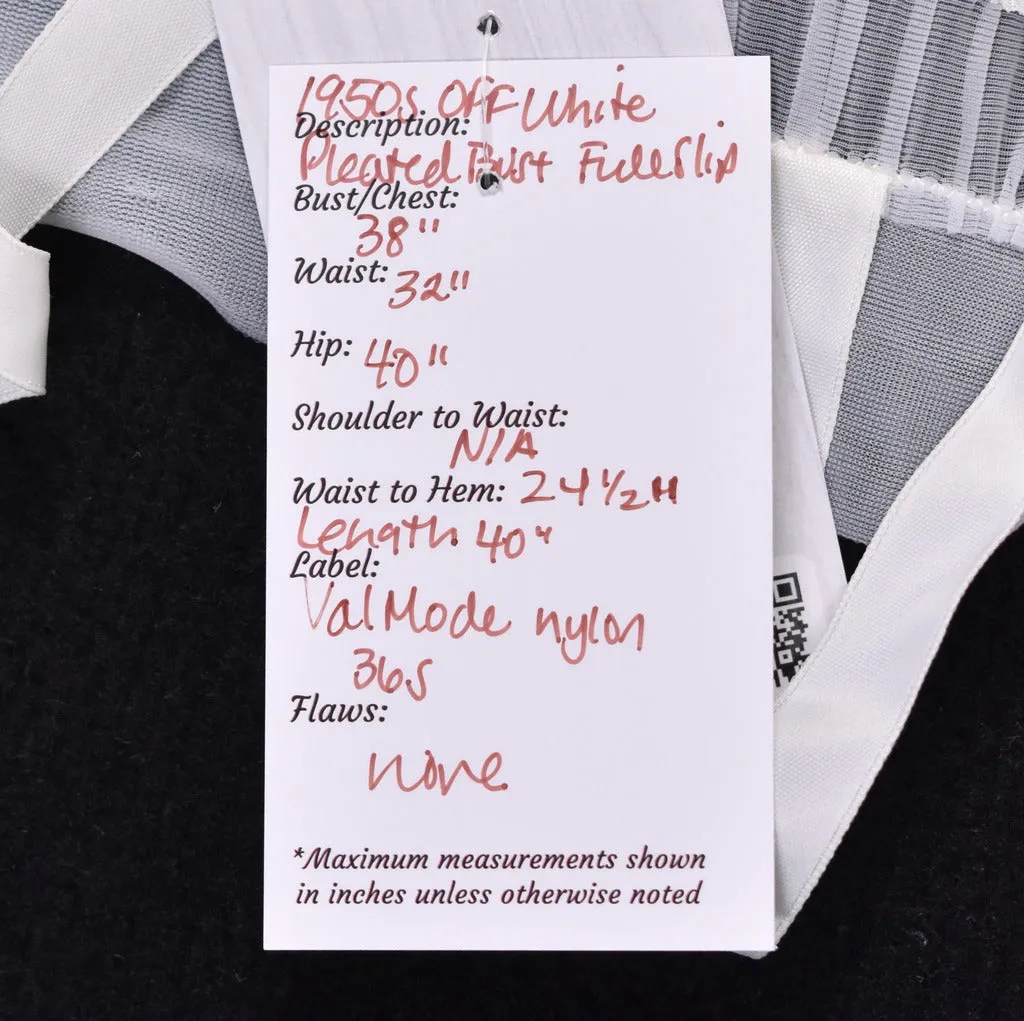 1950s Off White
Description:
Pleated Bust Full Slip
Bust/Chest:
38"
Waist: 32"
Hip: 40"
Shoulder to Waist:
N/A
Waist to Hem: 24 1/2"
Length 40"
Label:
ValMode nylon
36S
Flaws:
none
*Maximum measurements shown
in inches unless otherwise noted